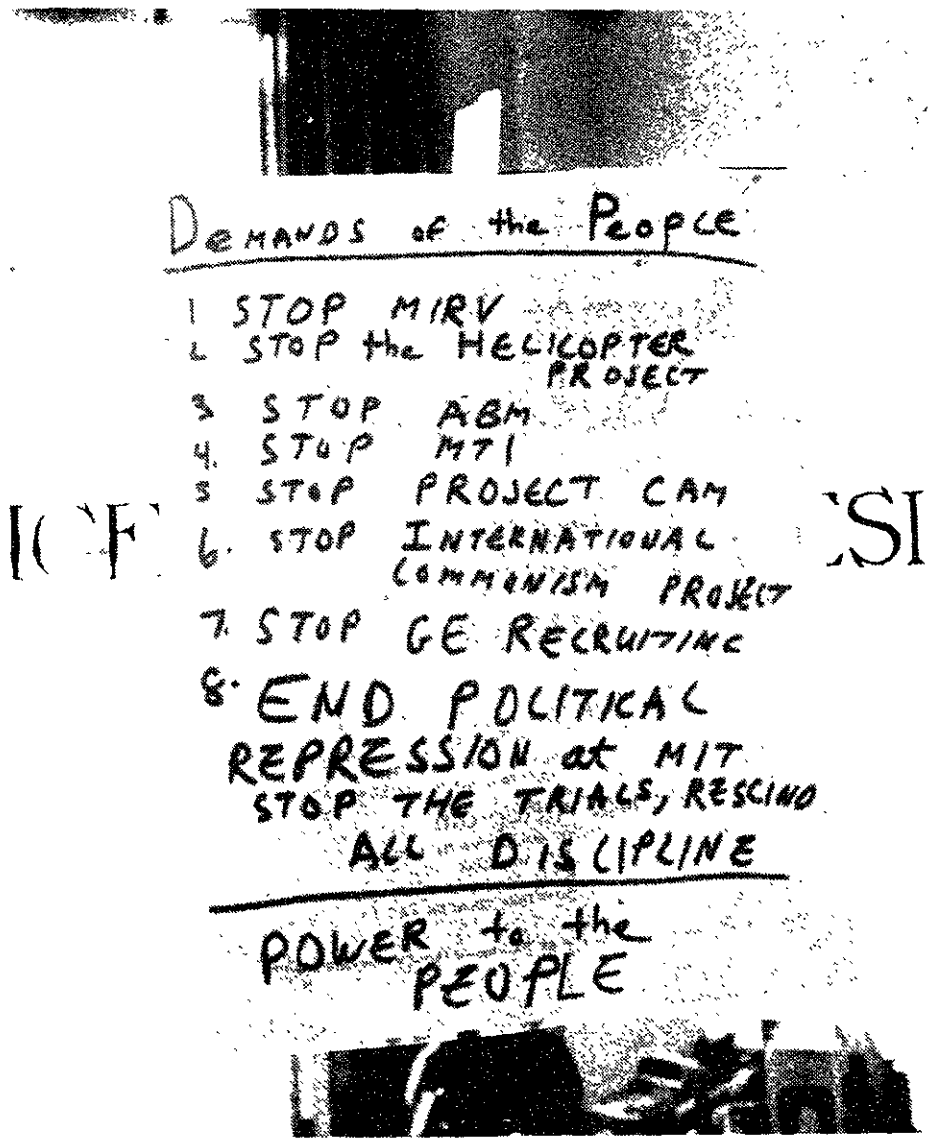 Demands of the People
1 STOP MIRV
2 STOP the HELICOPTER
PROJECT
3 STOP ABM
4. STOP MTI
5 STOP PROJECT CAM
6. STOP INTERNATIONAL
COMMUNISM PROJECT
7. STOP GE RECRUITING
8. END POLITICAL
REPRESSION at MIT
STOP THE TRIALS, RESCIND
ALL DISCIPLINE
POWER to the
PEOPLE